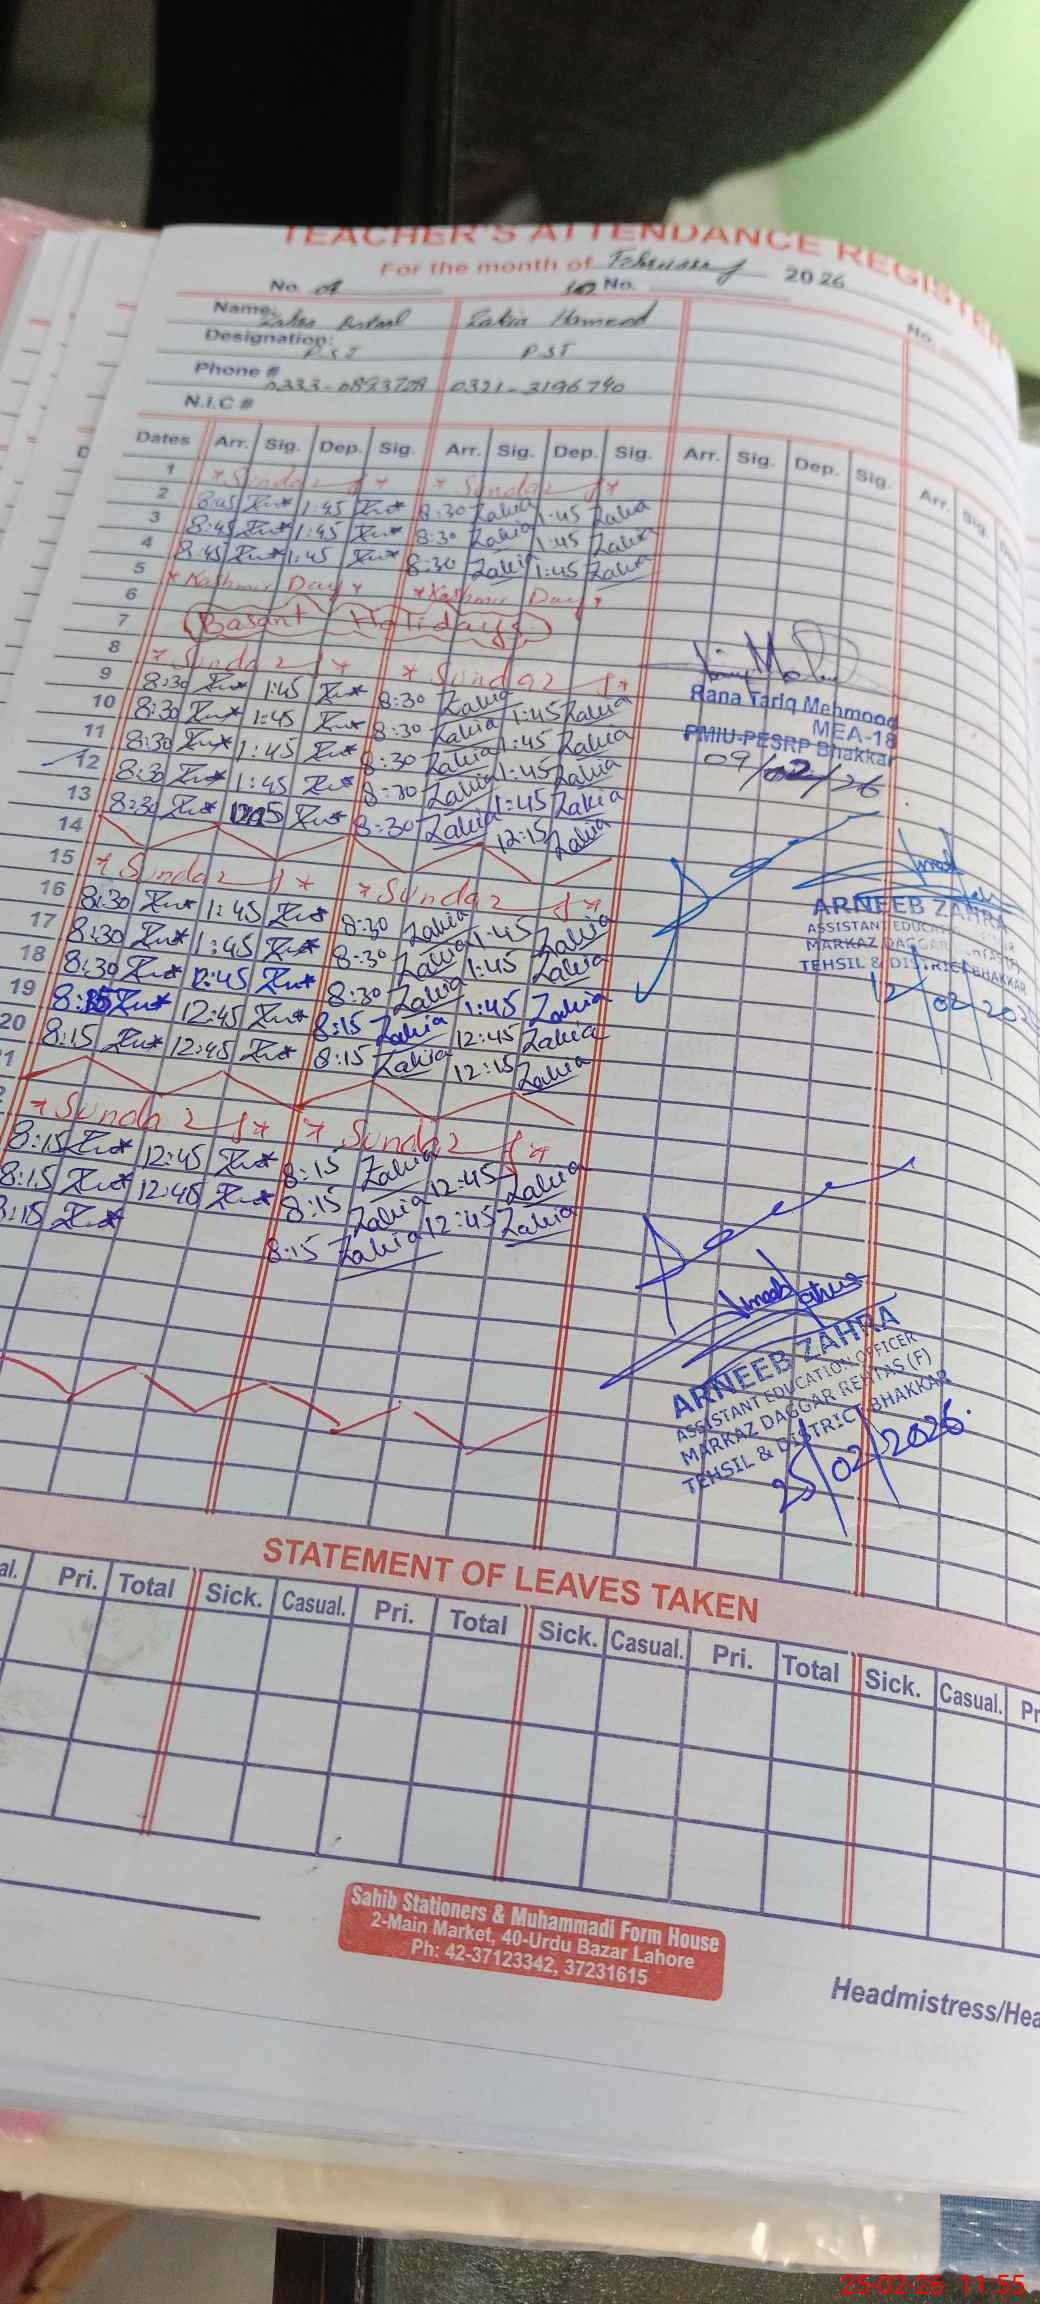 TEACHER'S ATTENDANCE REGISTER
For the month of February 2026
No. 09 10 No. No.
Name: Zakia Hameed
Designation: P.S.T P.S.T
Phone # 0321-3196740
N.I.C #
Dates Arr. Sig. Dep. Sig. Arr. Sig. Dep. Sig. Arr. Sig. Dep. Sig. Arr. Sig.
1 * Sunday * * Sunday *
2 8:45 1:45 8:30 Zakia 1:45 Zakia
3 8:45 1:45 8:30 Zakia 1:45 Zakia
4 8:45 1:45 8:30 Zakia 1:45 Zakia
5 * Kashmir Day * * Kashmir Day *
6
7 Basant Holidays
8 * Sunday * * Sunday *
9 8:30 1:45 8:30 Zakia 1:45 Zakia
10 8:30 1:45 8:30 Zakia 1:45 Zakia
11 8:30 1:45 8:30 Zakia 1:45 Zakia
12 8:30 1:45 8:30 Zakia 1:45 Zakia
13 8:30 8:30 Zakia 12:15 Zakia
14
15 * Sunday * * Sunday *
16 8:30 1:45 8:30 Zakia 1:45 Zakia
17 8:30 1:45 8:30 Zakia 1:45 Zakia
18 8:30 12:45 8:30 Zakia 1:45 Zakia
19 8:15 12:45 8:15 Zakia 12:45 Zakia
20 8:15 12:45 8:15 Zakia 12:15 Zakia
* Sunday * * Sunday *
8:15 12:45 8:15 Zakia 12:45 Zakia
8:15 12:45 8:15 Zakia 12:45 Zakia
8:15 8:15 Zakia
Rana Tariq Mehmood
MEA-18
PMIU-PESRP Bhakkar
09/02/26
ARNEEB ZAHRA
ASSISTANT EDUCATION
MARKAZ DAGGAR
TEHSIL & DISTRICT BHAKKAR
12/02/2026
ARNEEB ZAHRA
ASSISTANT EDUCATION OFFICER
MARKAZ DAGGAR REHTAS (F)
TEHSIL & DISTRICT BHAKKAR
25/02/2026.
STATEMENT OF LEAVES TAKEN
al. Pri. Total Sick. Casual. Pri. Total Sick. Casual. Pri. Total Sick. Casual. Pr
Sahib Stationers & Muhammadi Form House
2-Main Market, 40-Urdu Bazar Lahore
Ph: 42-37123342, 37231615
Headmistress/Hea
25-02-26 11:55